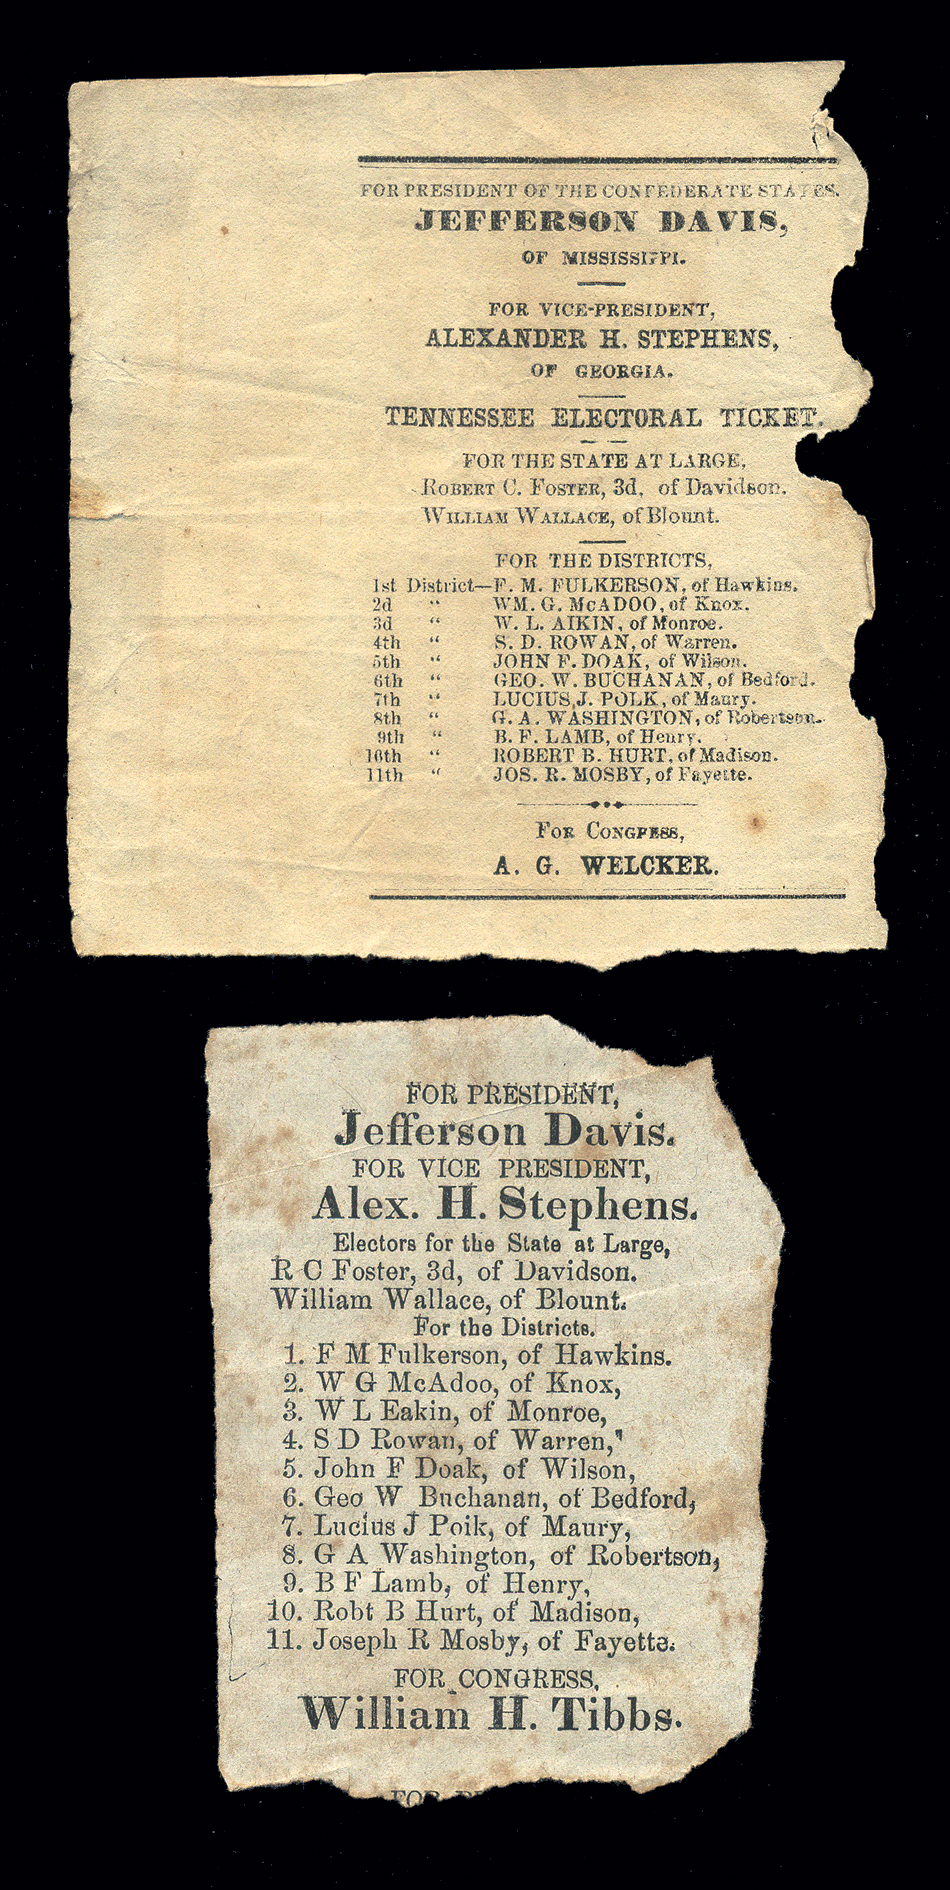 FOR PRESIDENT OF THE CONFEDERATE STATES.
JEFFERSON DAVIS,
OF MISSISSIPPI.
FOR VICE-PRESIDENT,
ALEXANDER H. STEPHENS,
OF GEORGIA.
TENNESSEE ELECTORAL TICKET.
FOR THE STATE AT LARGE,
ROBERT C. FOSTER, 3d, of Davidson.
WILLIAM WALLACE, of Blount.
FOR THE DISTRICTS,
1st District—F. M. FULKERSON, of Hawkins.
2d “ WM. G. McADOO, of Knox.
3d “ W. L. AIKIN, of Monroe.
4th “ S. D. ROWAN, of Warren.
5th “ JOHN F. DOAK, of Wilson.
6th “ GEO. W. BUCHANAN, of Bedford.
7th “ LUCIUS, J. POLK, of Maury.
8th “ G. A. WASHINGTON, of Robertson.
9th “ B. F. LAMB, of Henry.
10th “ ROBERT B. HURT, of Madison.
11th “ JOS. R. MOSBY, of Fayette.
FOR CONGRESS,
A. G. WELCKER.
FOR PRESIDENT,
Jefferson Davis.
FOR VICE PRESIDENT,
Alex. H. Stephens.
Electors for the State at Large,
R C Foster, 3d, of Davidson.
William Wallace, of Blount.
For the Districts.
1. F M Fulkerson, of Hawkins.
2. W G McAdoo, of Knox,
3. W L Eakin, of Monroe,
4. S D Rowan, of Warren,
5. John F Doak, of Wilson,
6. Geo W Buchanan, of Bedford,
7. Lucius J Poik, of Maury,
8. G A Washington, of Robertson,
9. B F Lamb, of Henry,
10. Robt B Hurt, of Madison,
11. Joseph R Mosby, of Fayette.
FOR CONGRESS,
William H. Tibbs.
FOR